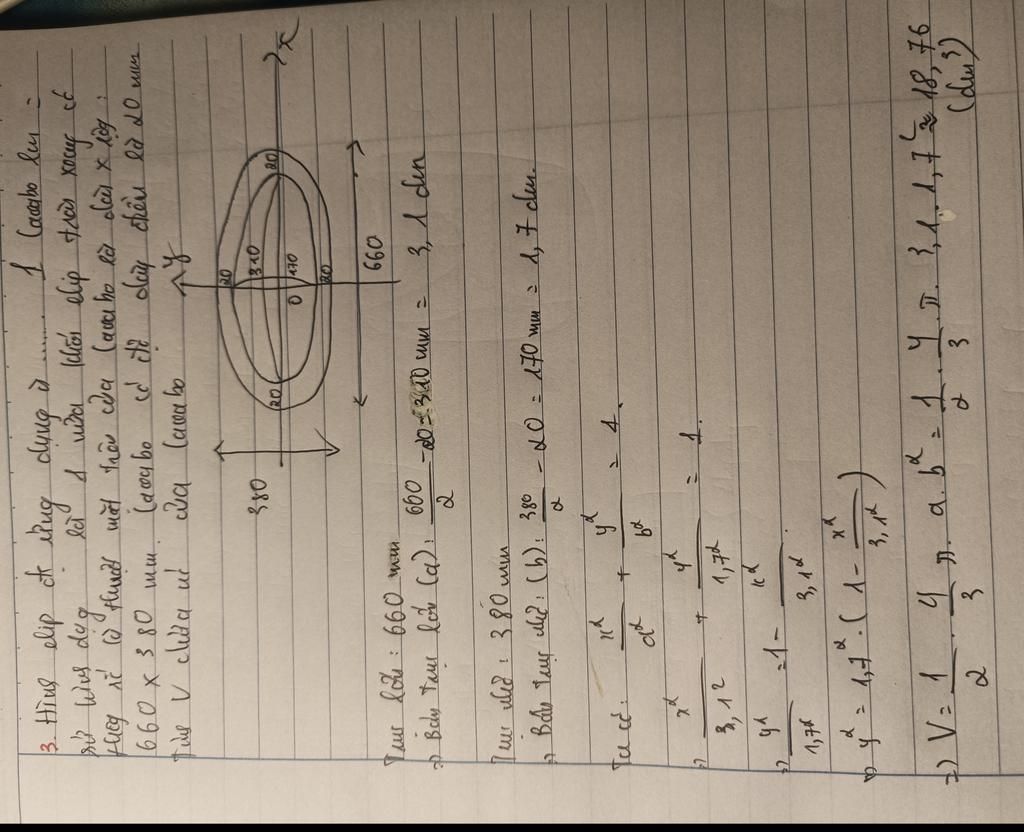 3. Hình elip đc ứng dụng ở ....... 1 lavabo làm =
sứ hình dạng là 1 nửa khối elip tròn xoay có
thông số kĩ thuật mặt trên của lavabo là dài x rộng:
660 x 380 mm. Lavabo có độ dày đều là 20 mm
Tính V chứa nước của lavabo
y
x
20
310
20
20
170
0
20
380
660
Trục lớn: 660 mm
=> Bán trục lớn (a): 660/2 - 20 = 310 mm = 3,1 dm
Trục nhỏ: 380 mm
=> Bán trục nhỏ: (b): 380/2 - 20 = 170 mm = 1,7 dm.
Ta có: x²/a² + y²/b² = 1.
=> x²/3,1² + y²/1,7² = 1
=> y²/1,7² = 1 - x²/3,1²
=> y² = 1,7² . (1 - x²/3,1²)
=> V = 1/2 . 4/3 π. a. b² = 1/2 . 4/3 . π. 3,1. 1,7² ≈ 18,76
(dm³)